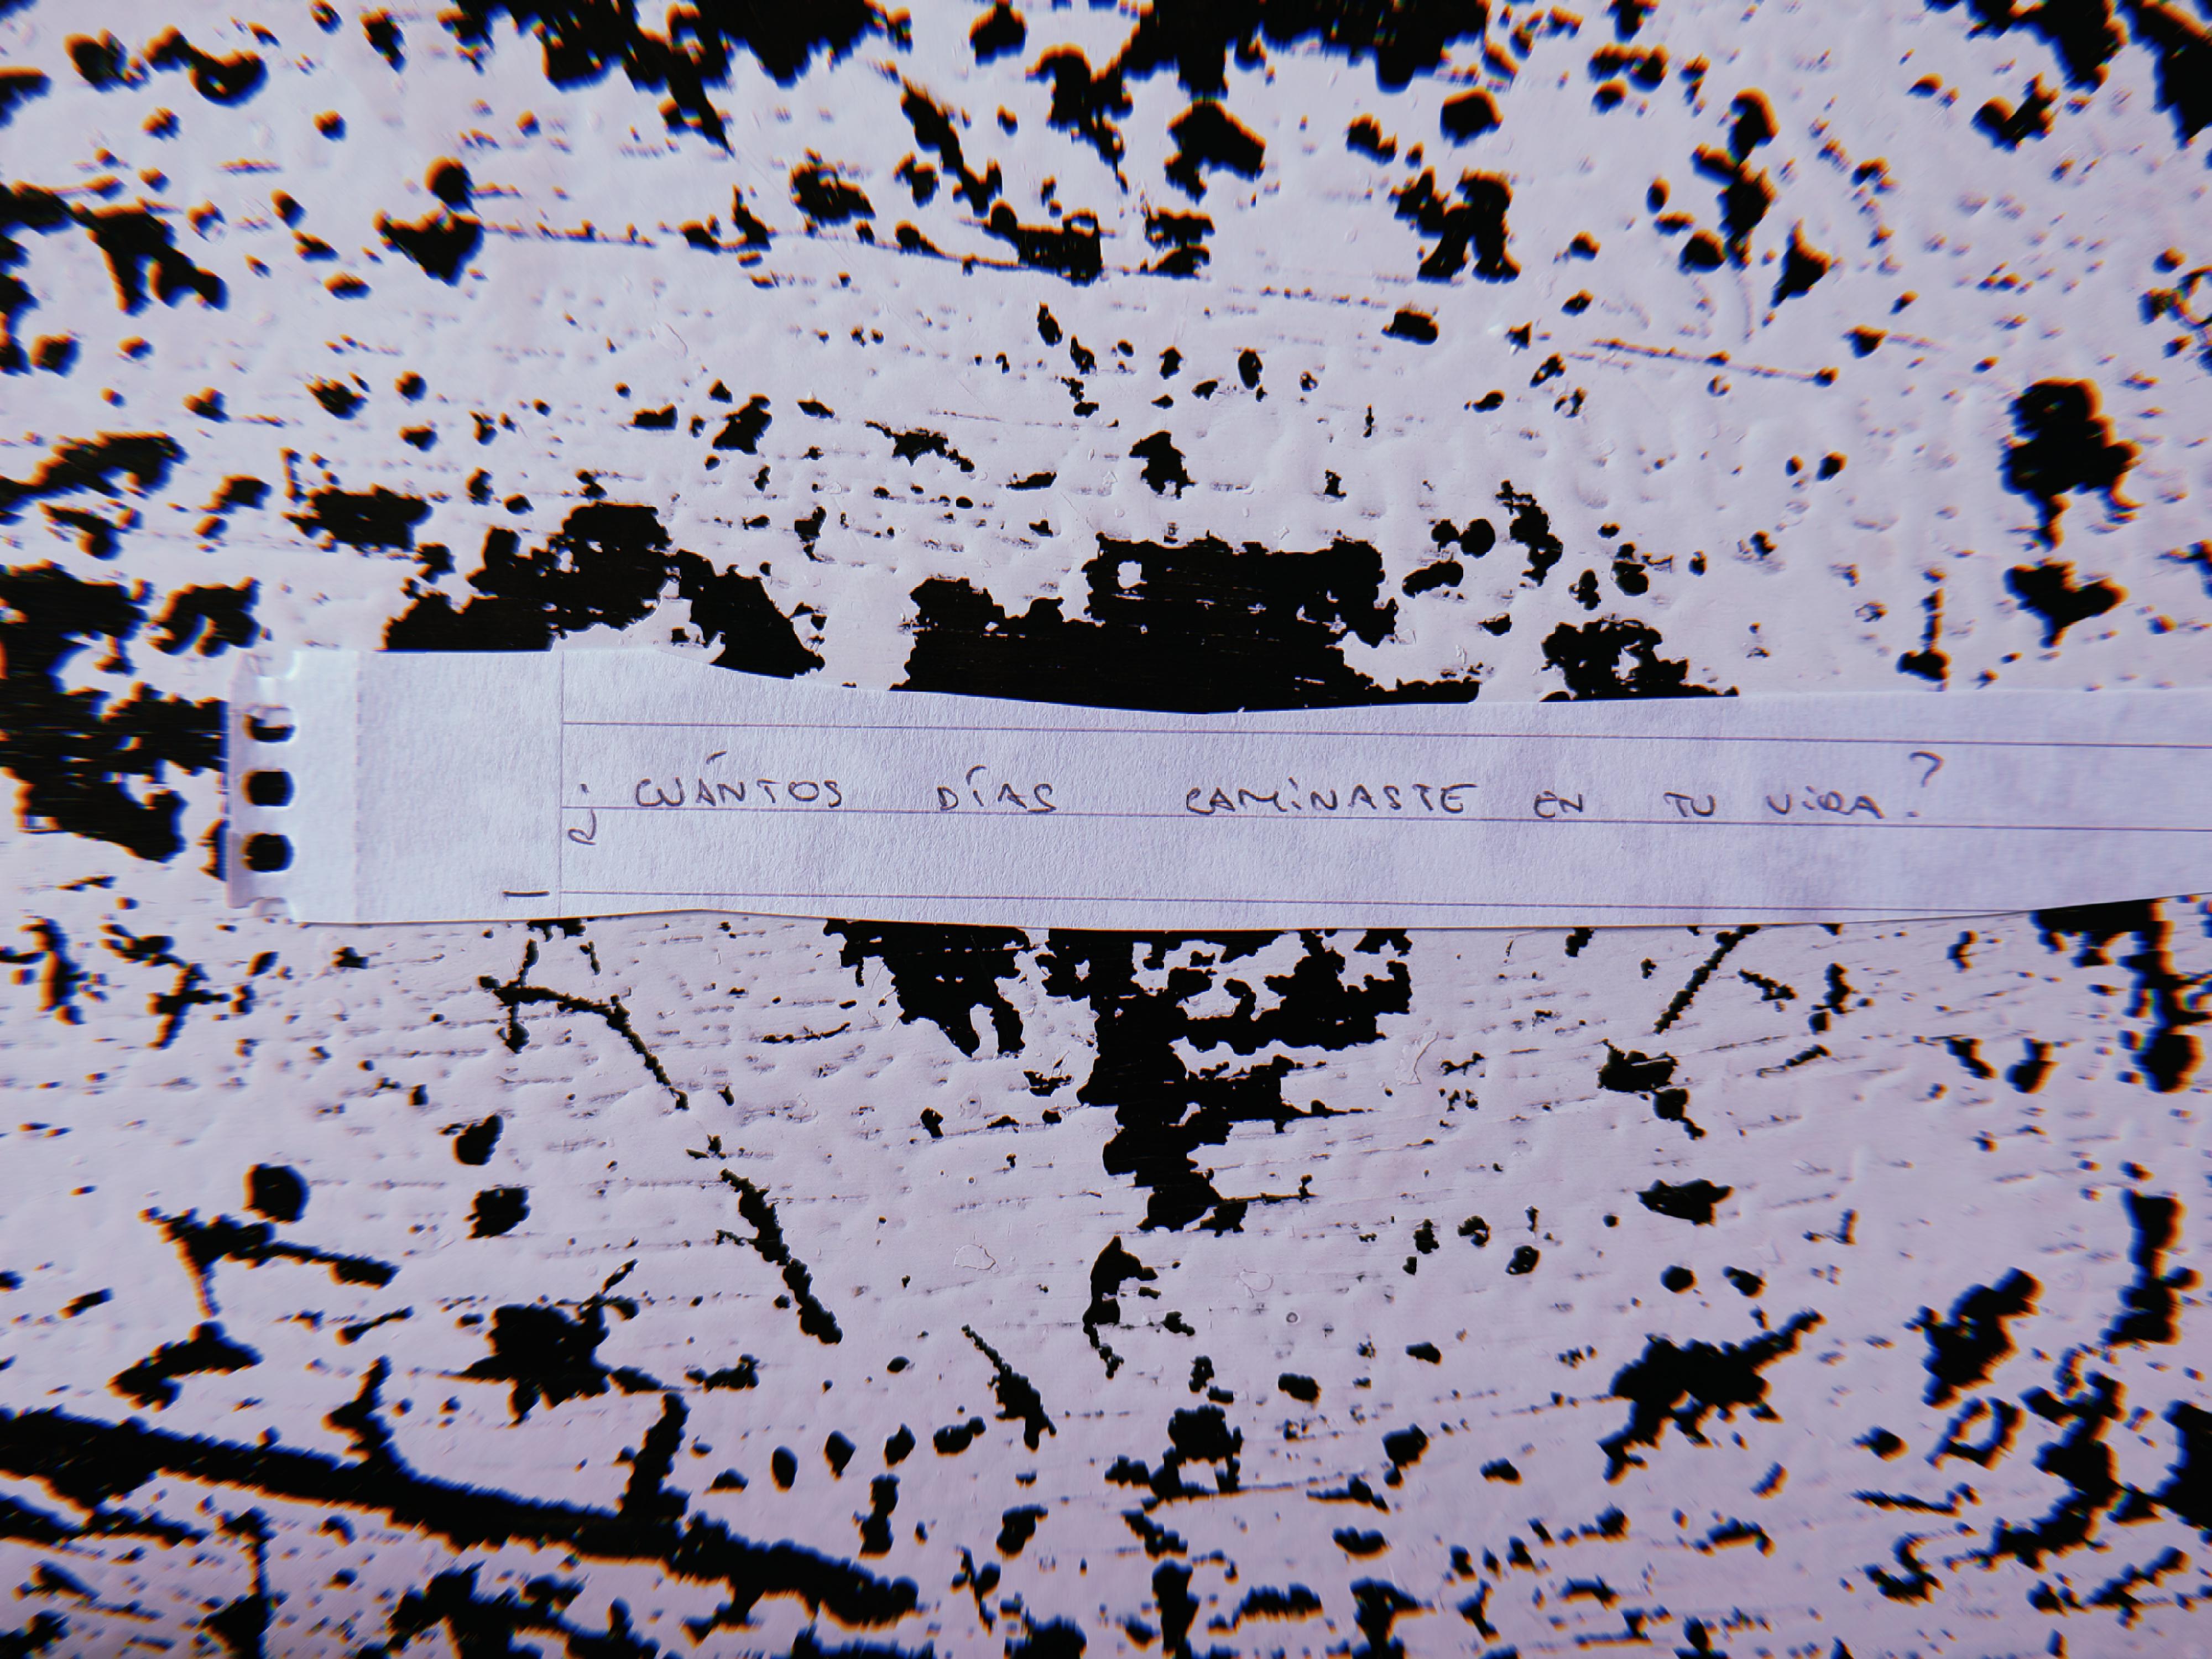 ¿CUÁNTOS DÍAS CAMINASTE EN TU VIDA?